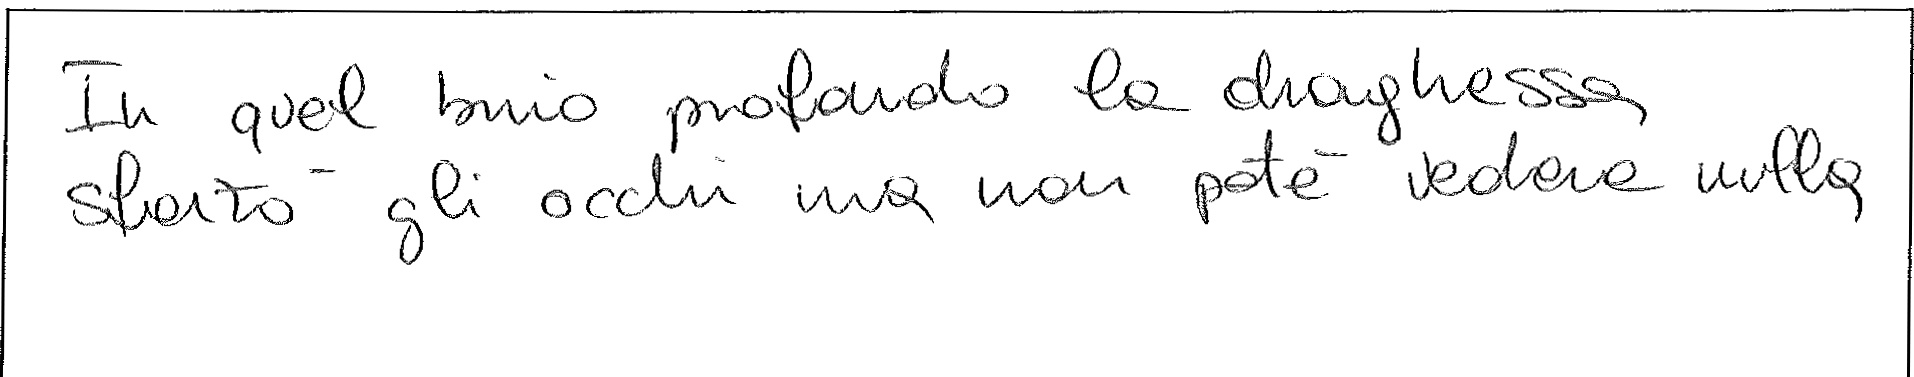 In quel buio profondo la draghessa
sbarrò gli occhi ma non poté vedere nulla